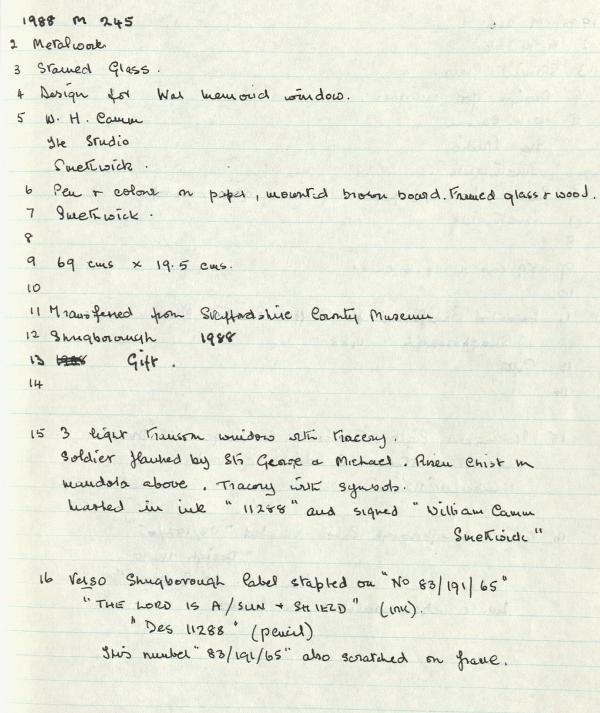 1988 M 245
2 Metalwork
3 Stained Glass.
4 Design for War memorial window.
5 W. H. Camm
The Studio
Smethwick.
6 Pen & colour on paper, mounted brown board. Framed glass & wood.
7 Smethwick.
8
9 69 cms x 19.5 cms.
10
11 Transferred from Staffordshire County Museum
12 Shugborough 1988
13 1988 Gift.
14
15 3 light transom window with tracery.
Soldier flanked by Sts George & Michael. Risen Christ in
mandola above. Tracery with symbols.
Marked in ink "11288" and signed "William Camm
Smethwick"
16 Verso Shugborough label stapled on "No 83/191/65"
"THE LORD IS A / SUN + SHIELD" (ink).
"Des 11288" (pencil)
This number "83/191/65" also scratched on frame.